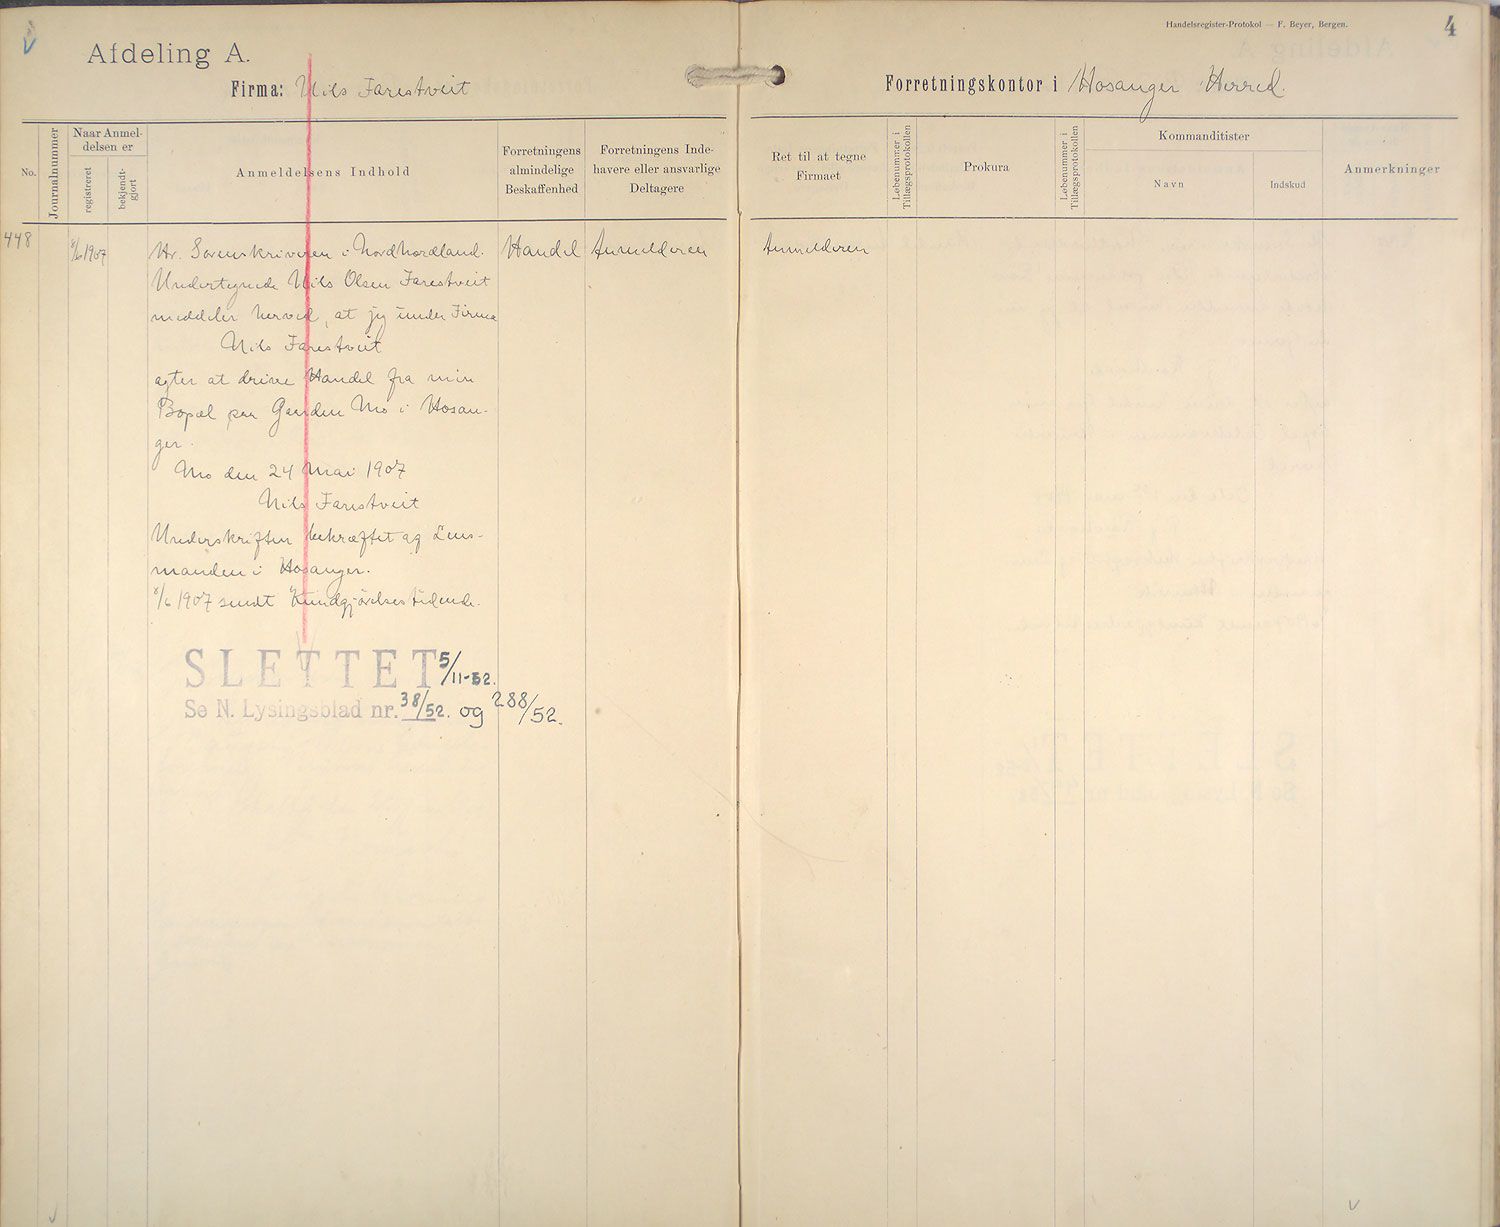 Handelsregister-Protokol — F. Beyer, Bergen.
4
Afdeling A.
Firma: Nils Farestveit
Forretningskontor i Hosanger Herred.
No.
Journalnummer
Naar Anmel-
delsen er
registreret
bekjendt-
gjort
Anmeldelsens Indhold
Forretningens
almindelige
Beskaffenhed
Forretningens Inde-
havere eller ansvarlige
Deltagere
Ret til at tegne
Firmaet
Løbenummer i
Tillægsprotokollen
Prokura
Løbenummer i
Tillægsprotokollen
Kommanditister
Navn
Indskud
Anmerkninger
448
8/6 1907
Hr. Sorenskriveren i Nordhordland.
Undertegnede Nils Olsen Farestveit
meddeler herved, at jeg under Firma
Nils Farestveit
agter at drive Handel fra min
Bopæl paa Gaarden Mo i Hosan-
ger.
Mo den 24 Mai 1907
Nils Farestveit
Underskriften bekræftet ag Lens-
manden i Hosanger.
8/6 1907 sendt Kundgjørelsestidende.
Handel
Anmelderen
Anmelderen
SLETTET 5/11-52.
Se N. Lysingsblad nr. 38/52. og 288/52.